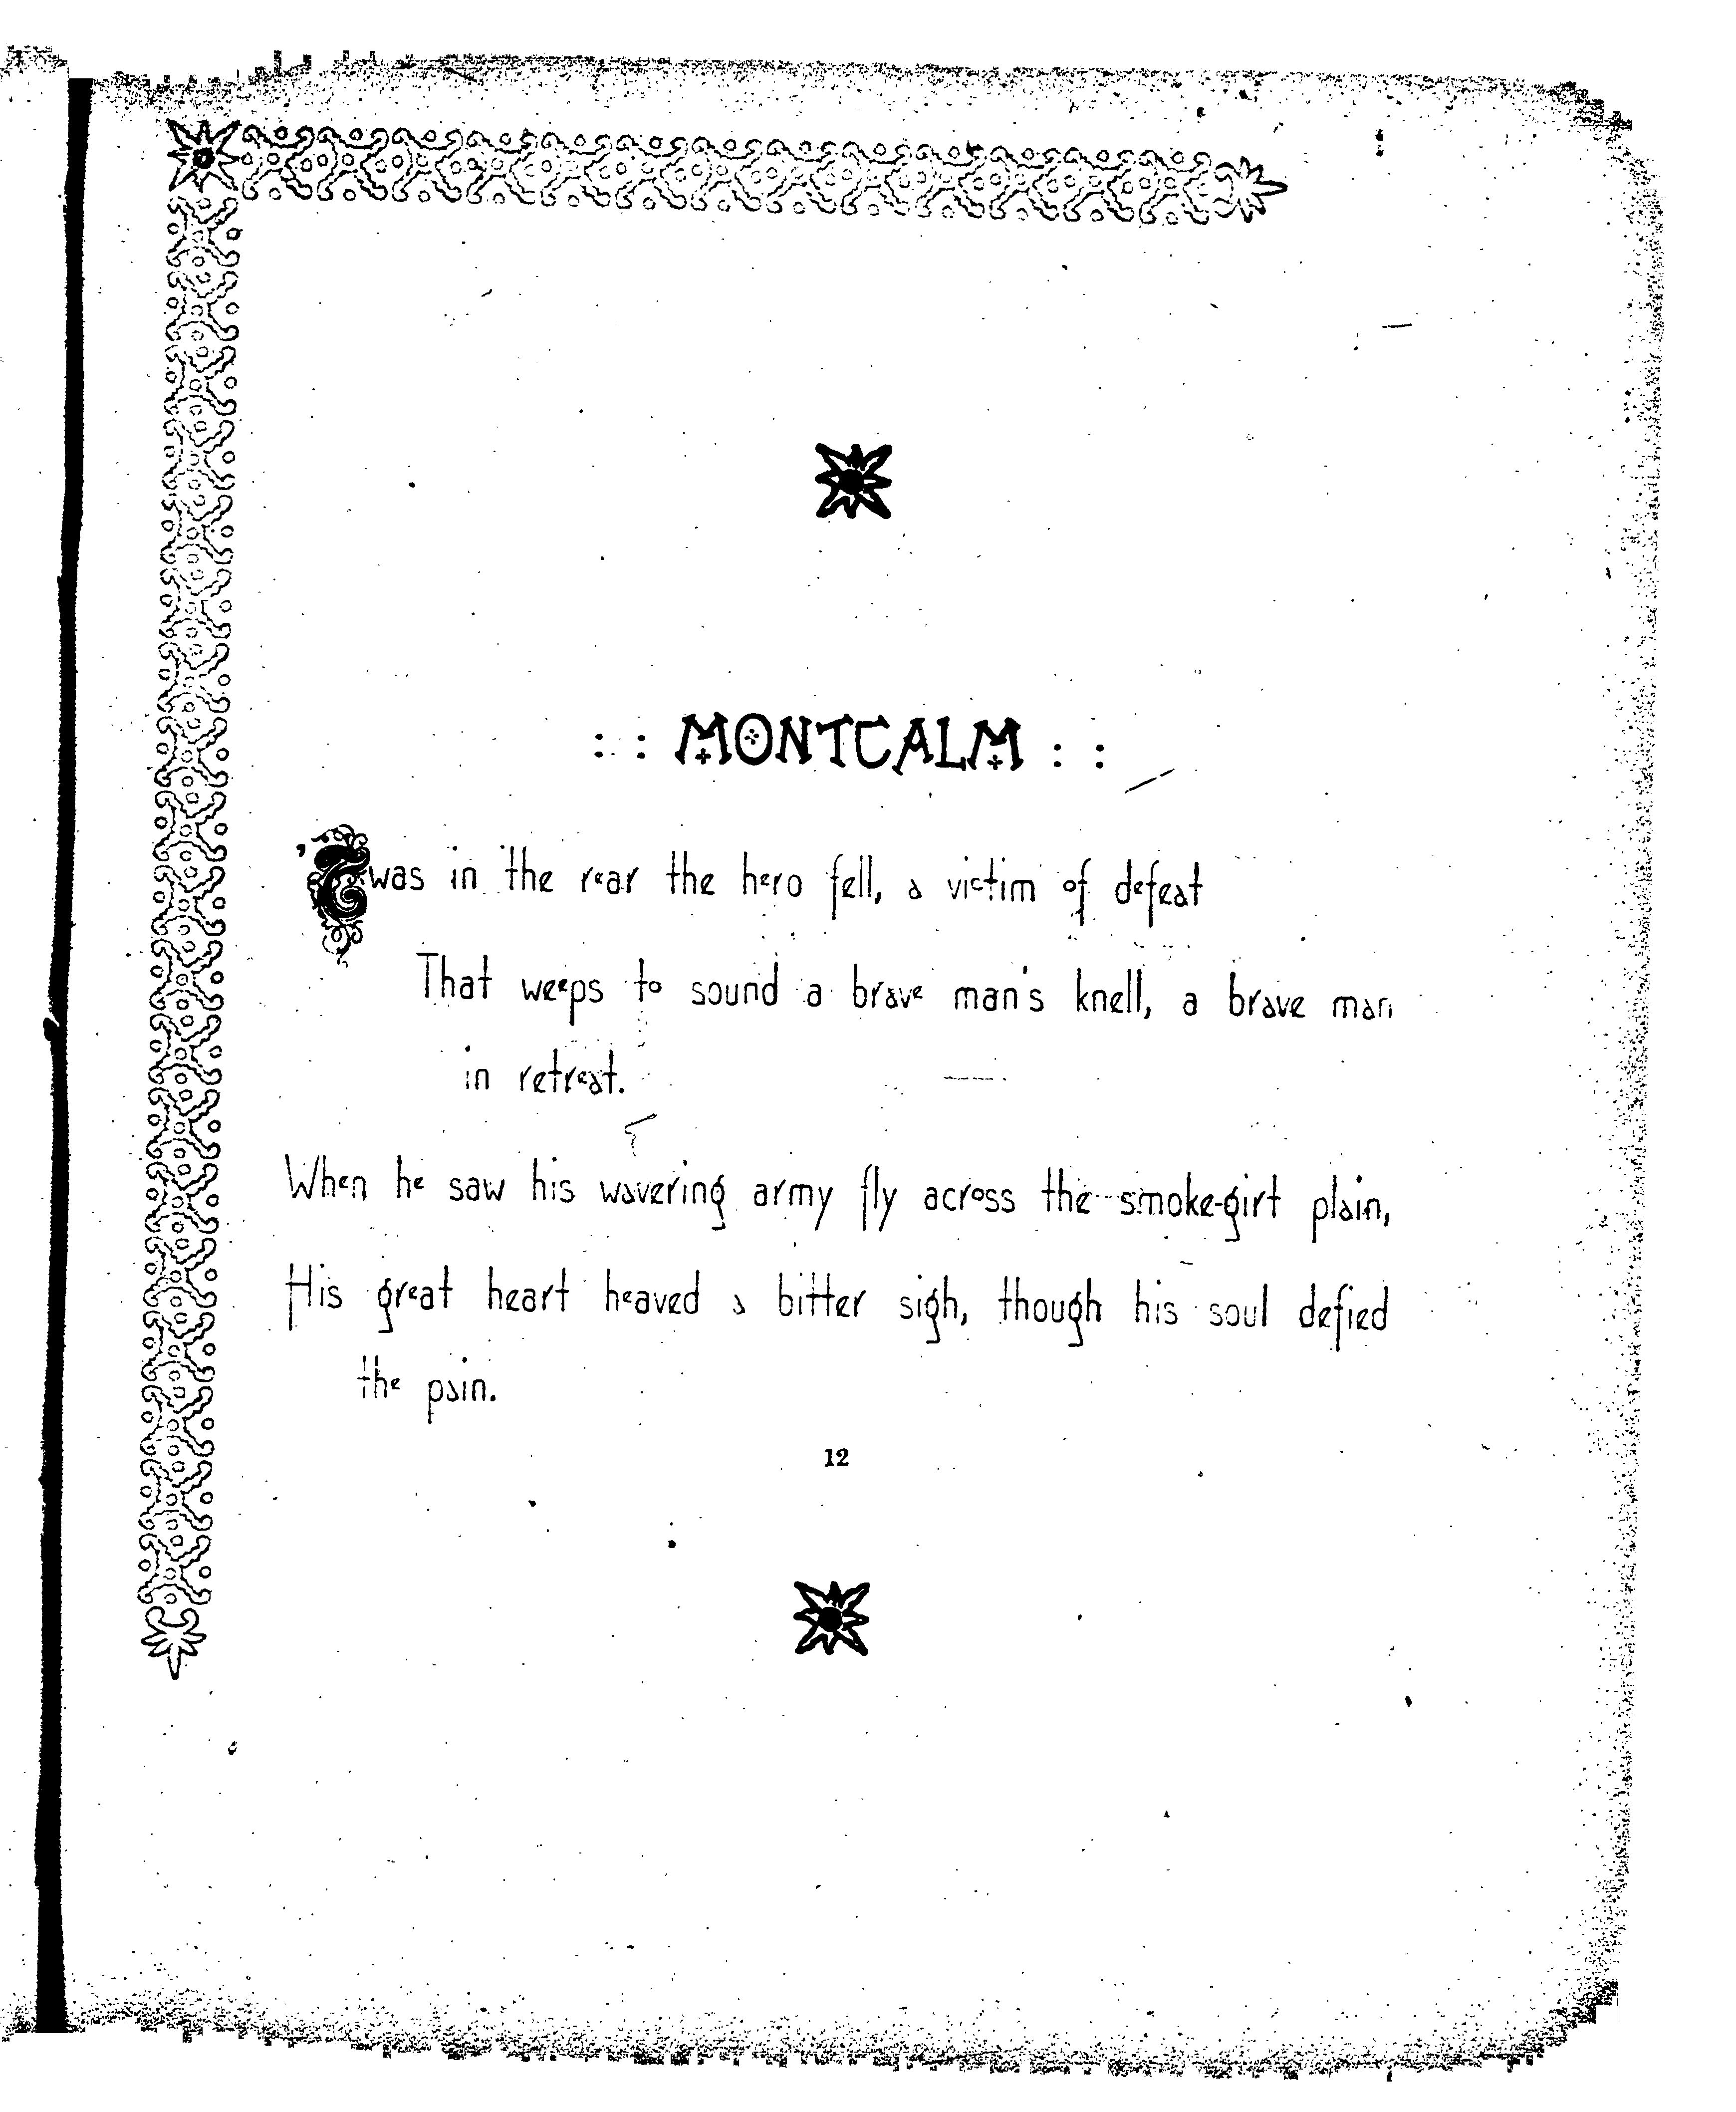 : : MONTCALM : :
'Twas in the rear the hero fell, a victim of defeat
That weeps to sound a brave man's knell, a brave man
in retreat.
When he saw his wavering army fly across the smoke-girt plain,
His great heart heaved a bitter sigh, though his soul defied
the pain.
12